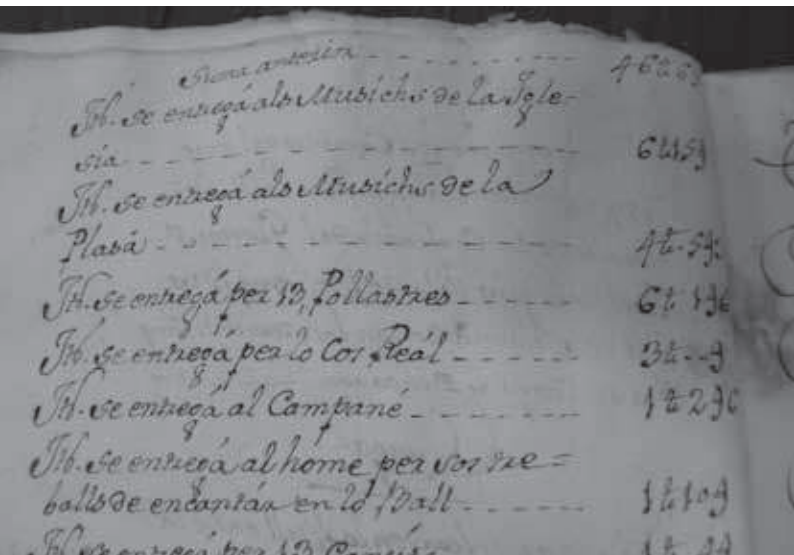 Suma anterior - - - - - - - - 46 ₶ 6
Itt. se entregá als Musichs de la Igle-
sia - - - - - - - - - - 6 ₶ 15 ỻ
Itt. se entregá als Musichs de la
Plasá - - - - - - - - - 4 ₶ - 5 ỻ
Itt. se entregá per 13, Pollastres - - - - - 6 ₶ 1 ỻ 6
Itt. se entregá per lo Cos Reál - - - - - 3 ₶ - - ỻ
Itt. se entregá al Campané - - - - - - 1 ₶ 2 ỻ 6
Itt. se entregá al hóme per sos tre=
balls de encantár en ló Ball - - - - - 1 ₶ 10 ỻ
Itt. se entregá per 13